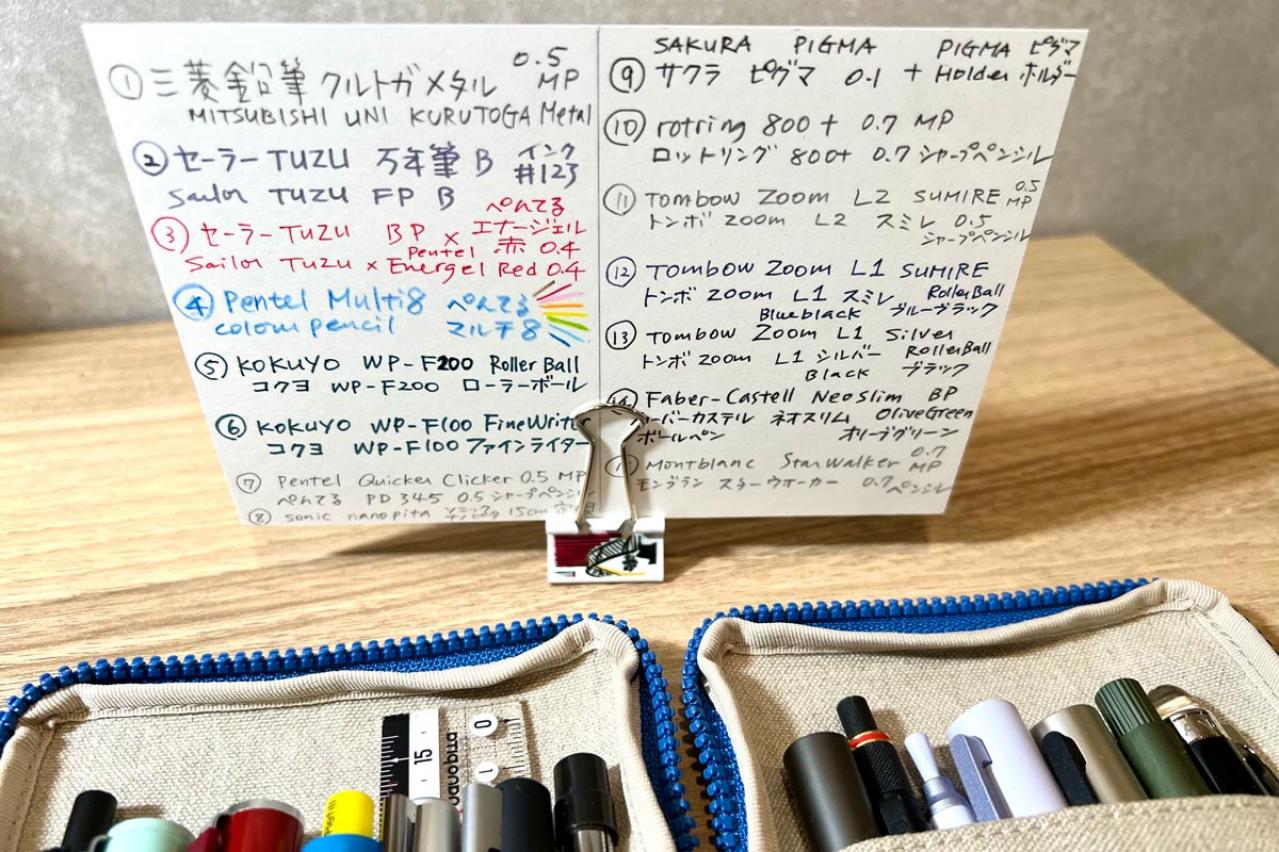 ① 三菱鉛筆 クルトガメタル 0.5 MP
MITSUBISHI UNI KURUTOGA Metal
② セーラー TUZU 万年筆 B インク #123
Sailor TUZU FP B
③ セーラー TUZU BP × ぺんてる エナージェル 赤 0.4
Sailor TUZU × Pentel Energel Red 0.4
④ Pentel Multi8 ぺんてる
colour pencil マルチ8
⑤ KOKUYO WP-F200 Roller Ball
コクヨ WP-F200 ローラーボール
⑥ KOKUYO WP-F100 FineWriter
コクヨ WP-F100 ファインライター
⑦ Pentel Quicker Clicker 0.5 MP
ぺんてる PD345 0.5 シャープペンシル
⑧ sonic nanopita ソニック ナノピタ 15cm
SAKURA PIGMA PIGMA ピグマ
⑨ サクラ ピグマ 0.1 + Holder ホルダー
⑩ rotring 800+ 0.7 MP
ロットリング 800+ 0.7 シャープペンシル
⑪ Tombow Zoom L2 SUMIRE 0.5 MP
トンボ zoom L2 スミレ 0.5
シャープペンシル
⑫ Tombow Zoom L1 SUMIRE
トンボ zoom L1 スミレ RollerBall
Blueblack ブルーブラック
⑬ Tombow Zoom L1 Silver
トンボ zoom L1 シルバー RollerBall
Black ブラック
⑭ Faber-Castell Neo Slim BP
ァーバーカステル ネオスリム OliveGreen
ボールペン オリーブグリーン
Montblanc StarWalker 0.7 MP
モンブラン スターウオーカー 0.7 ペンシル
15
0
1